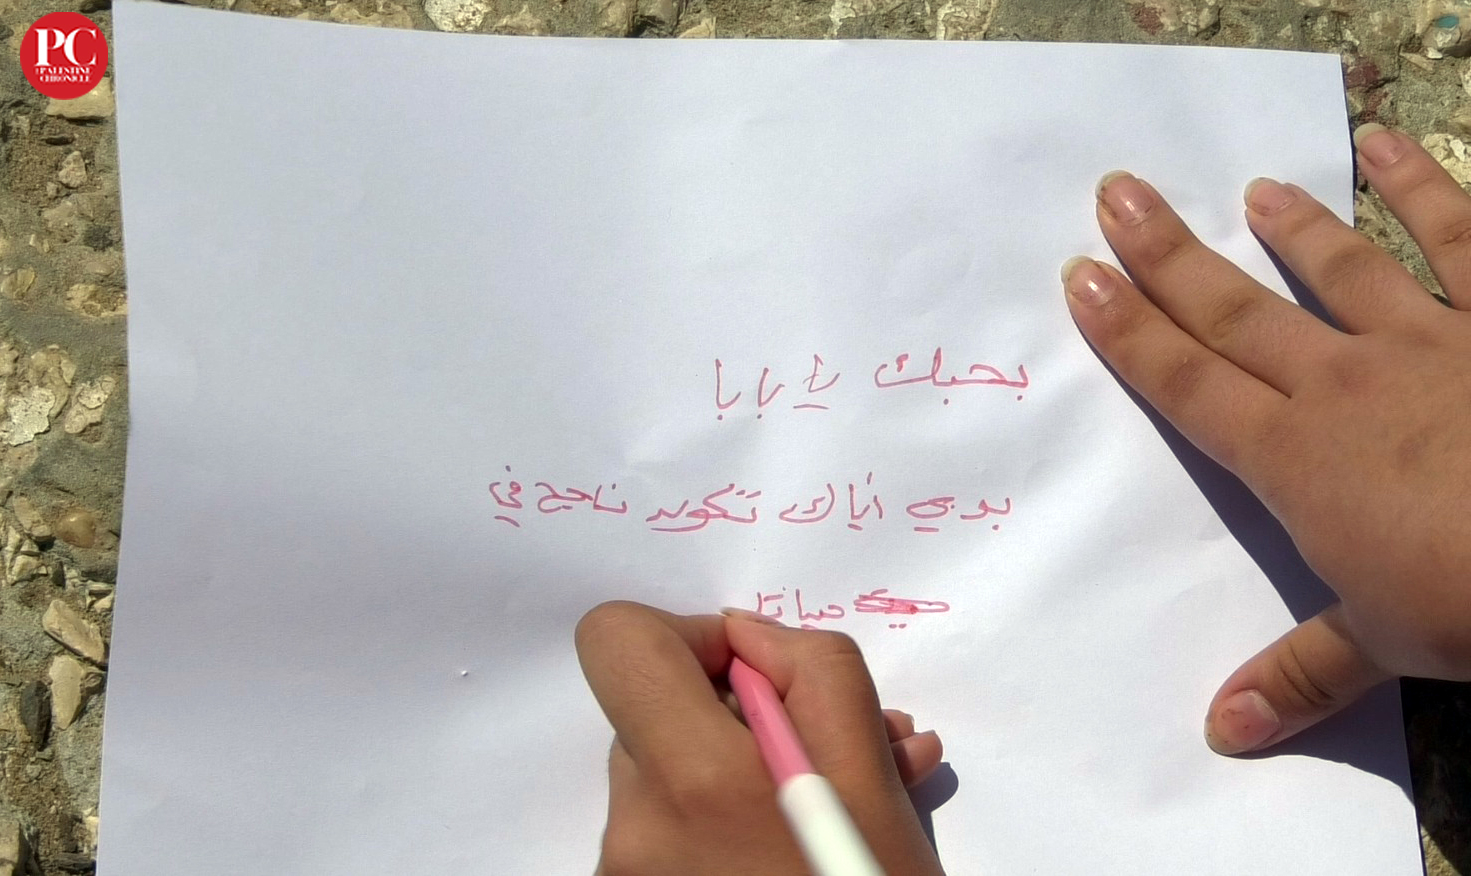 PC
PALESTINE
CHRONICLE
بحبك يا بابا
بدي اياك تكون ناجح في